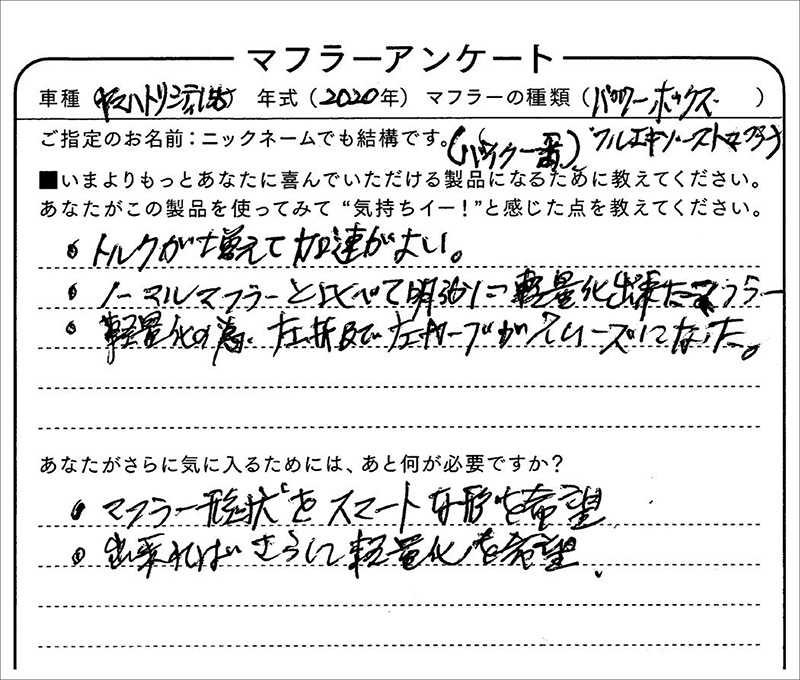 マフラーアンケート
車種（ヤマハトリシティ155）年式（2020年）マフラーの種類（パワーボックス）
フルエキゾーストマフラー
ご指定のお名前：ニックネームでも結構です。（バイク一番）
■いまよりもっとあなたに喜んでいただける製品になるために教えてください。
あなたがこの製品を使ってみて“気持ちイー！”と感じた点を教えてください。
・トルクが増えて加速がよい。
・ノーマルマフラーと比べて明らかに軽量化出来たマフラー
・軽量化の為、左折及び左カーブがスムーズになった。
あなたがさらに気に入るためには、あと何が必要ですか？
・マフラー形状をスマートな形を希望
・出来ればさらに軽量化を希望、